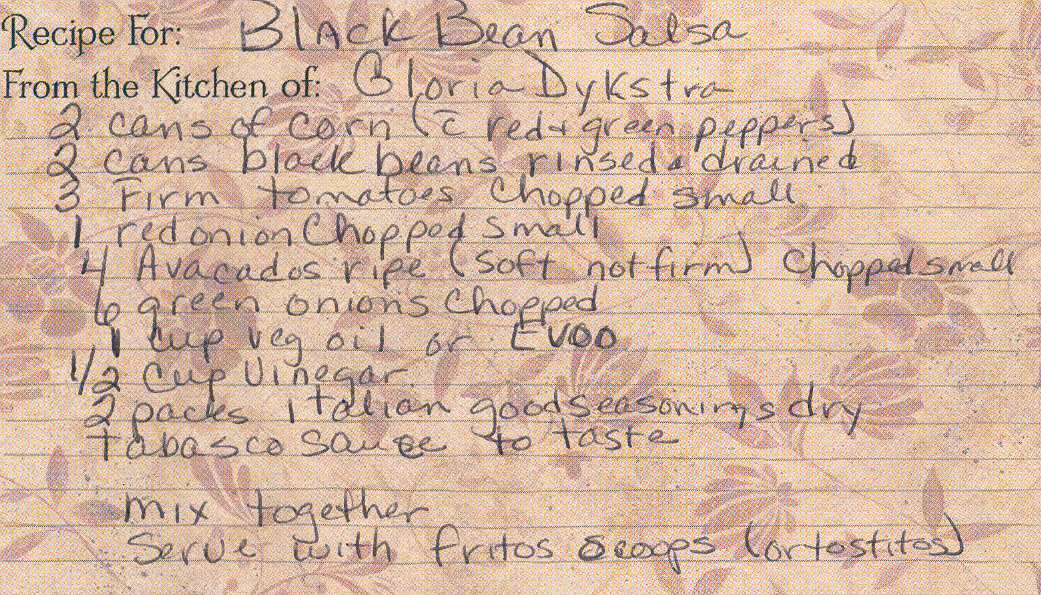 Recipe For: Black Bean Salsa
From the Kitchen of: Gloria Dykstra
2 cans of corn (c̄ red + green peppers)
2 cans black beans rinsed & drained
3 Firm tomatoes Chopped small
1 red onion Chopped small
4 Avacados ripe (soft not firm) Chopped small
6 green onions Chopped
1 Cup veg oil or EVOO
1/2 Cup Vinegar
2 packs italian good seasonings dry
tabasco sauce to taste
mix together
Serve with fritos scoops (or tostitos)